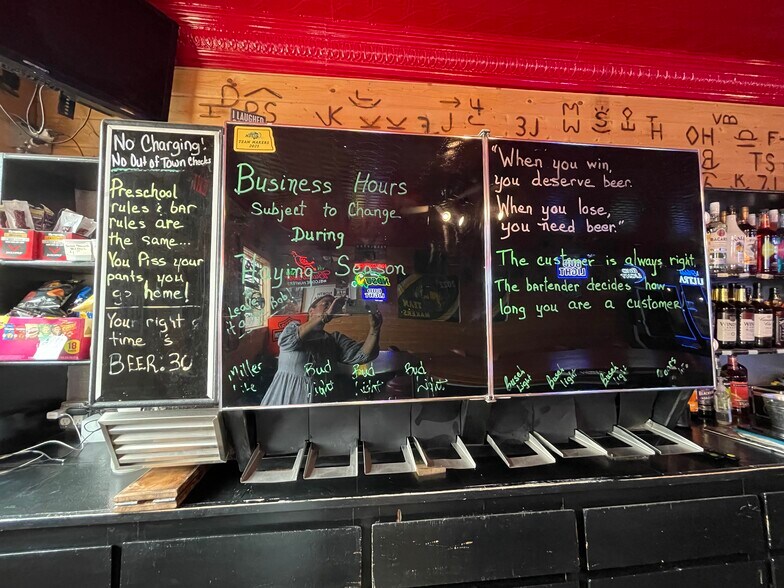 No Charging!
No Out of Town Checks
Preschool
rules & bar
rules are
the same...
You Piss your
pants, you
go home!
Your right
time is
BEER:30
I LAUGHED
Business Hours
Subject to Change
During
Haying Season
Leave
it a
Bob!
Miller
Lite
Bud
Light
Bud
Light
Bud
Light
"When you win,
you deserve beer.
When you lose,
you need beer."
The customer is always right,
The bartender decides how
long you are a customer
Busch
Light
Busch
light
Busch
light
Coors
light